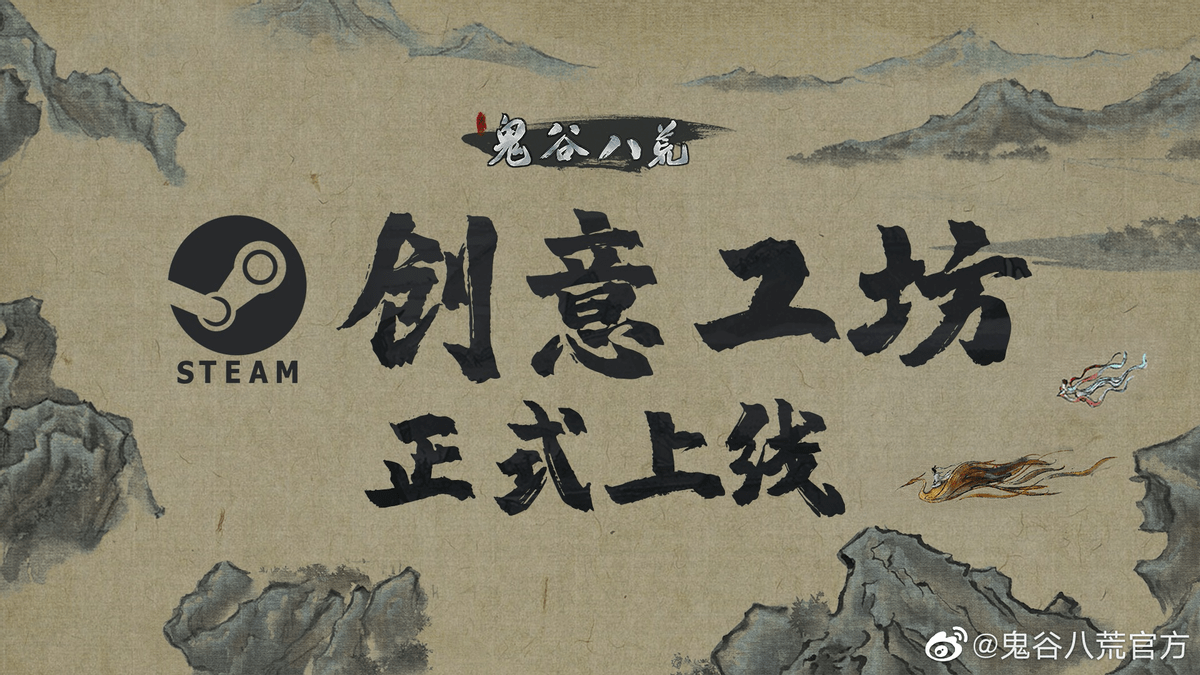 鬼谷八荒
创意工坊
STEAM
正式上线
@鬼谷八荒官方